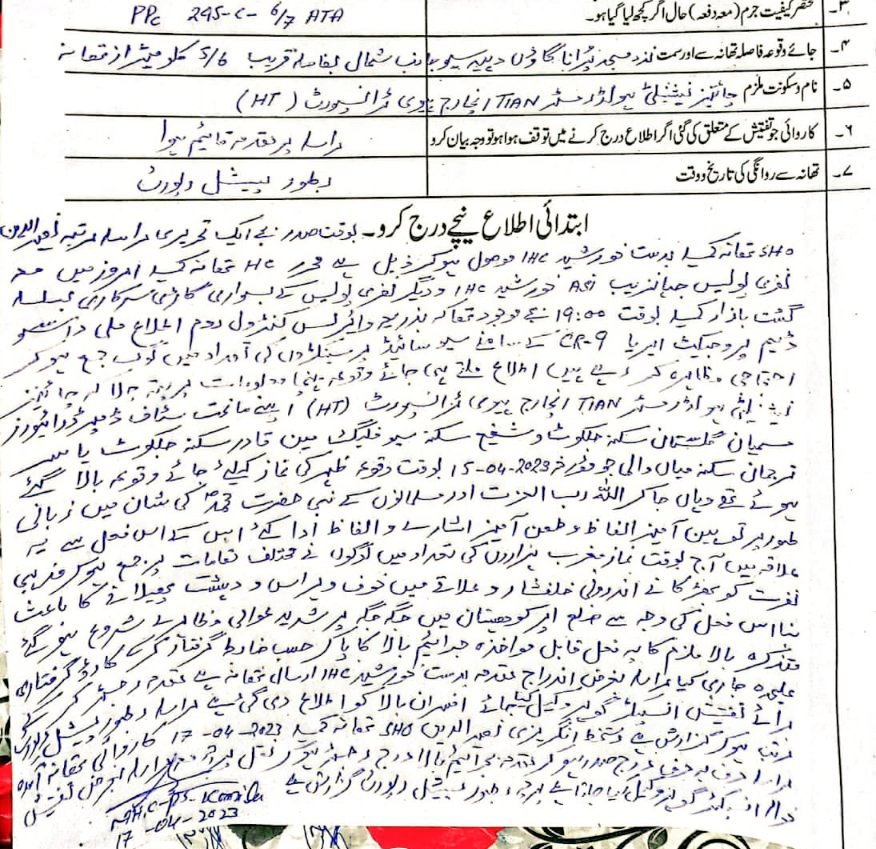 ۳۔ مختصر کیفیت جرم (معہ دفعہ) حال اگر کچھ لیا گیا ہو۔ PPC 295-C- 6/7 ATA
۴۔ جائے وقوعہ فاصلہ تھانہ سے اور سمت نزد مسجد پرانا گاؤں سیو بجانب شمال بفاصلہ قریب 5/6 کلومیٹر از تھانہ
۵۔ نام و سکونت ملزم چائنیز نیشنلٹی ہولڈر مسٹر TIAN انچارج ہیوی ٹرانسپورٹ (HT)
۶۔ کاروائی جو تفتیش کے متعلق کی گئی اگر اطلاع درج کرنے میں توقف ہوا ہو تو وجہ بیان کرو مراسلہ پر مقدمہ قائم ہوا
۷۔ تھانہ سے روانگی کی تاریخ و وقت بطور سپیشل رپورٹ
ابتدائی اطلاع نیچے درج کرو۔ بوقت صدر بجے ایک تحریری مراسلہ مرتبہ نصیر الدین
SHO تھانہ کمیلہ بدست خورشید IHC موصول ہو کر ذیل ہے محرر HC تھانہ کمیلہ امروز میں معہ
نفری پولیس جہانزیب ASI خورشید IHC و دیگر نفری پولیس کے بسواری گاڑی سرکاری بسلسلہ
گشت بازار کمیلہ بوقت 19:00 بجے موجود تھا کہ بذریعہ وائرلیس کنٹرول روم اطلاع ملی داسو
ڈیم پروجیکٹ ایریا CR-9 کے سامنے سیو سائیڈ پر سینکڑوں کی تعداد میں لوگ جمع ہو کر
احتجاجی مظاہرہ کر رہے ہیں اطلاع ملتے ہی جائے وقوعہ پہنچا معلومات پر پتہ چلا کہ چائنیز
نیشنلٹی ہولڈر مسٹر TIAN انچارج ہیوی ٹرانسپورٹ (HT) اپنے ماتحت سٹاف ڈمپر ڈرائیورز
مسمیان گلستان سکنہ جلکوٹ و شفیع سکنہ سیو قادر سکنہ جلکوٹ یاسر
ترجمان سکنہ میاں والی جو مورخہ 15-04-2023 بوقت وقوعہ ظہر کی نماز کیلئے جائے وقوعہ بالا گئے
ہوئے تھے وہاں جا کر اللہ رب العزت اور مسلمانوں کے نبی حضرت محمدؐ کی شان میں زبانی
طور پر توہین آمیز الفاظ و طعن آمیز اشارے و الفاظ ادا کئے اس کے اس فعل سے
علاقہ میں آج بوقت نماز مغرب ہزاروں کی تعداد میں لوگوں نے مختلف مقامات پر جمع ہو کر مذہبی
نفرت کو بھڑکانے اندرونی خلفشار و علاقے میں خوف و ہراس و دہشت پھیلانے کا باعث
بنا اس فعل کی وجہ سے ضلع اپر کوہستان میں جگہ جگہ پر شدید عوامی مظاہرے شروع ہو گئے
متذکرہ بالا ملزم کا یہ فعل قابل مواخذہ جرائم بالا کا پا کر حسب ضابطہ گرفتار کرکے کارڈ گرفتاری
علیحدہ جاری کیا مراسلہ بغرض اندراج مقدمہ بدست خورشید IHC ارسال تھانہ ہے مقدمہ رجسٹر کر کے
برائے تفتیش انسپکٹر کیا جائے افسران بالا کو اطلاع دی گئی ہے مراسلہ بطور سپیشل رپورٹ
مرتب ہو کر گزارش ہے دستخط انگریزی نصیر الدین SHO تھانہ کمیلہ 17-04-2023 کاروائی تھانہ آمدہ
مراسلہ حرف بہ حرف درج صدر ہو کر مقدمہ بجرائم بالا درج رجسٹر ہو کر نقل پرچہ معہ مراسلہ بغرض تفتیش
کیا جاتا ہے پرچہ بطور سپیشل رپورٹ گزارش ہے
MHC-PS-Komila
17-04-2023